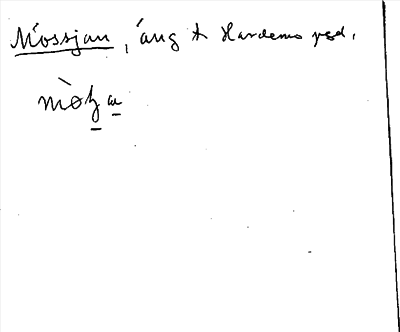 Mossjan, äng t Hardemo pgd.
mòʒa